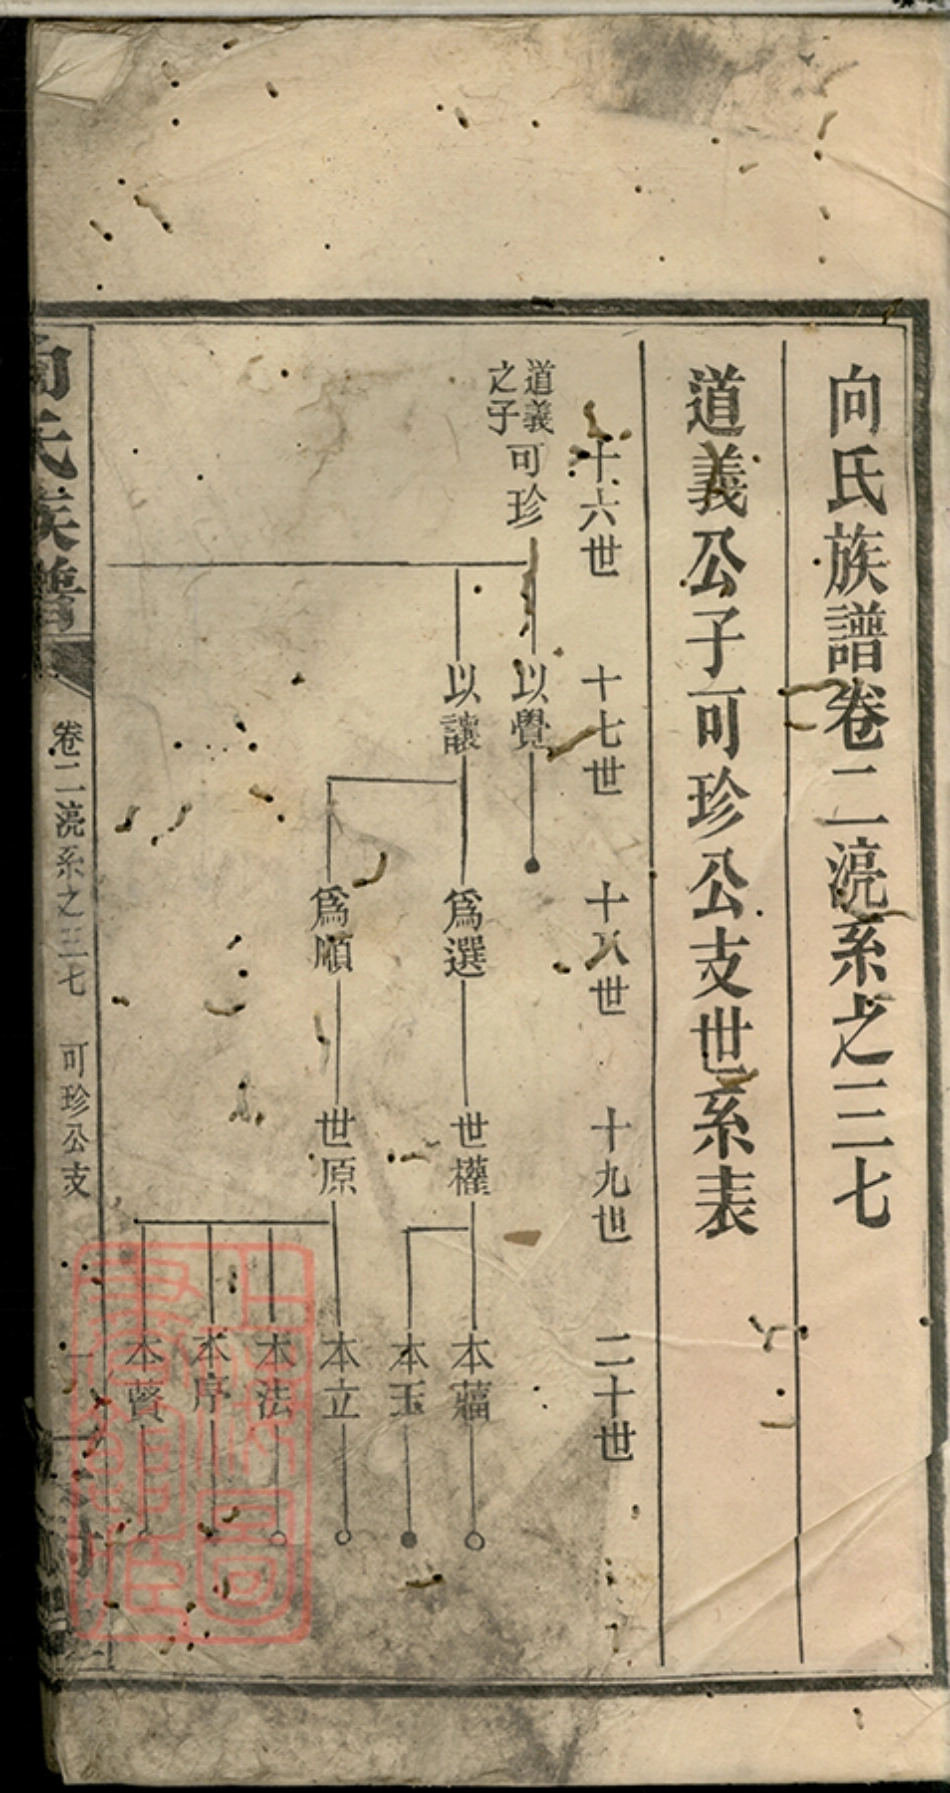 向氏族譜卷二滰系之三七
道義公子可珍公支世系表
十六世
十七世
十八世
十九世
二十世
道義
之子
可珍
以覺
以讓
爲選
爲順
世權
世原
本立
本玉
本法
本序
本賢
向氏族譜
卷二滰系之三七 可珍公支